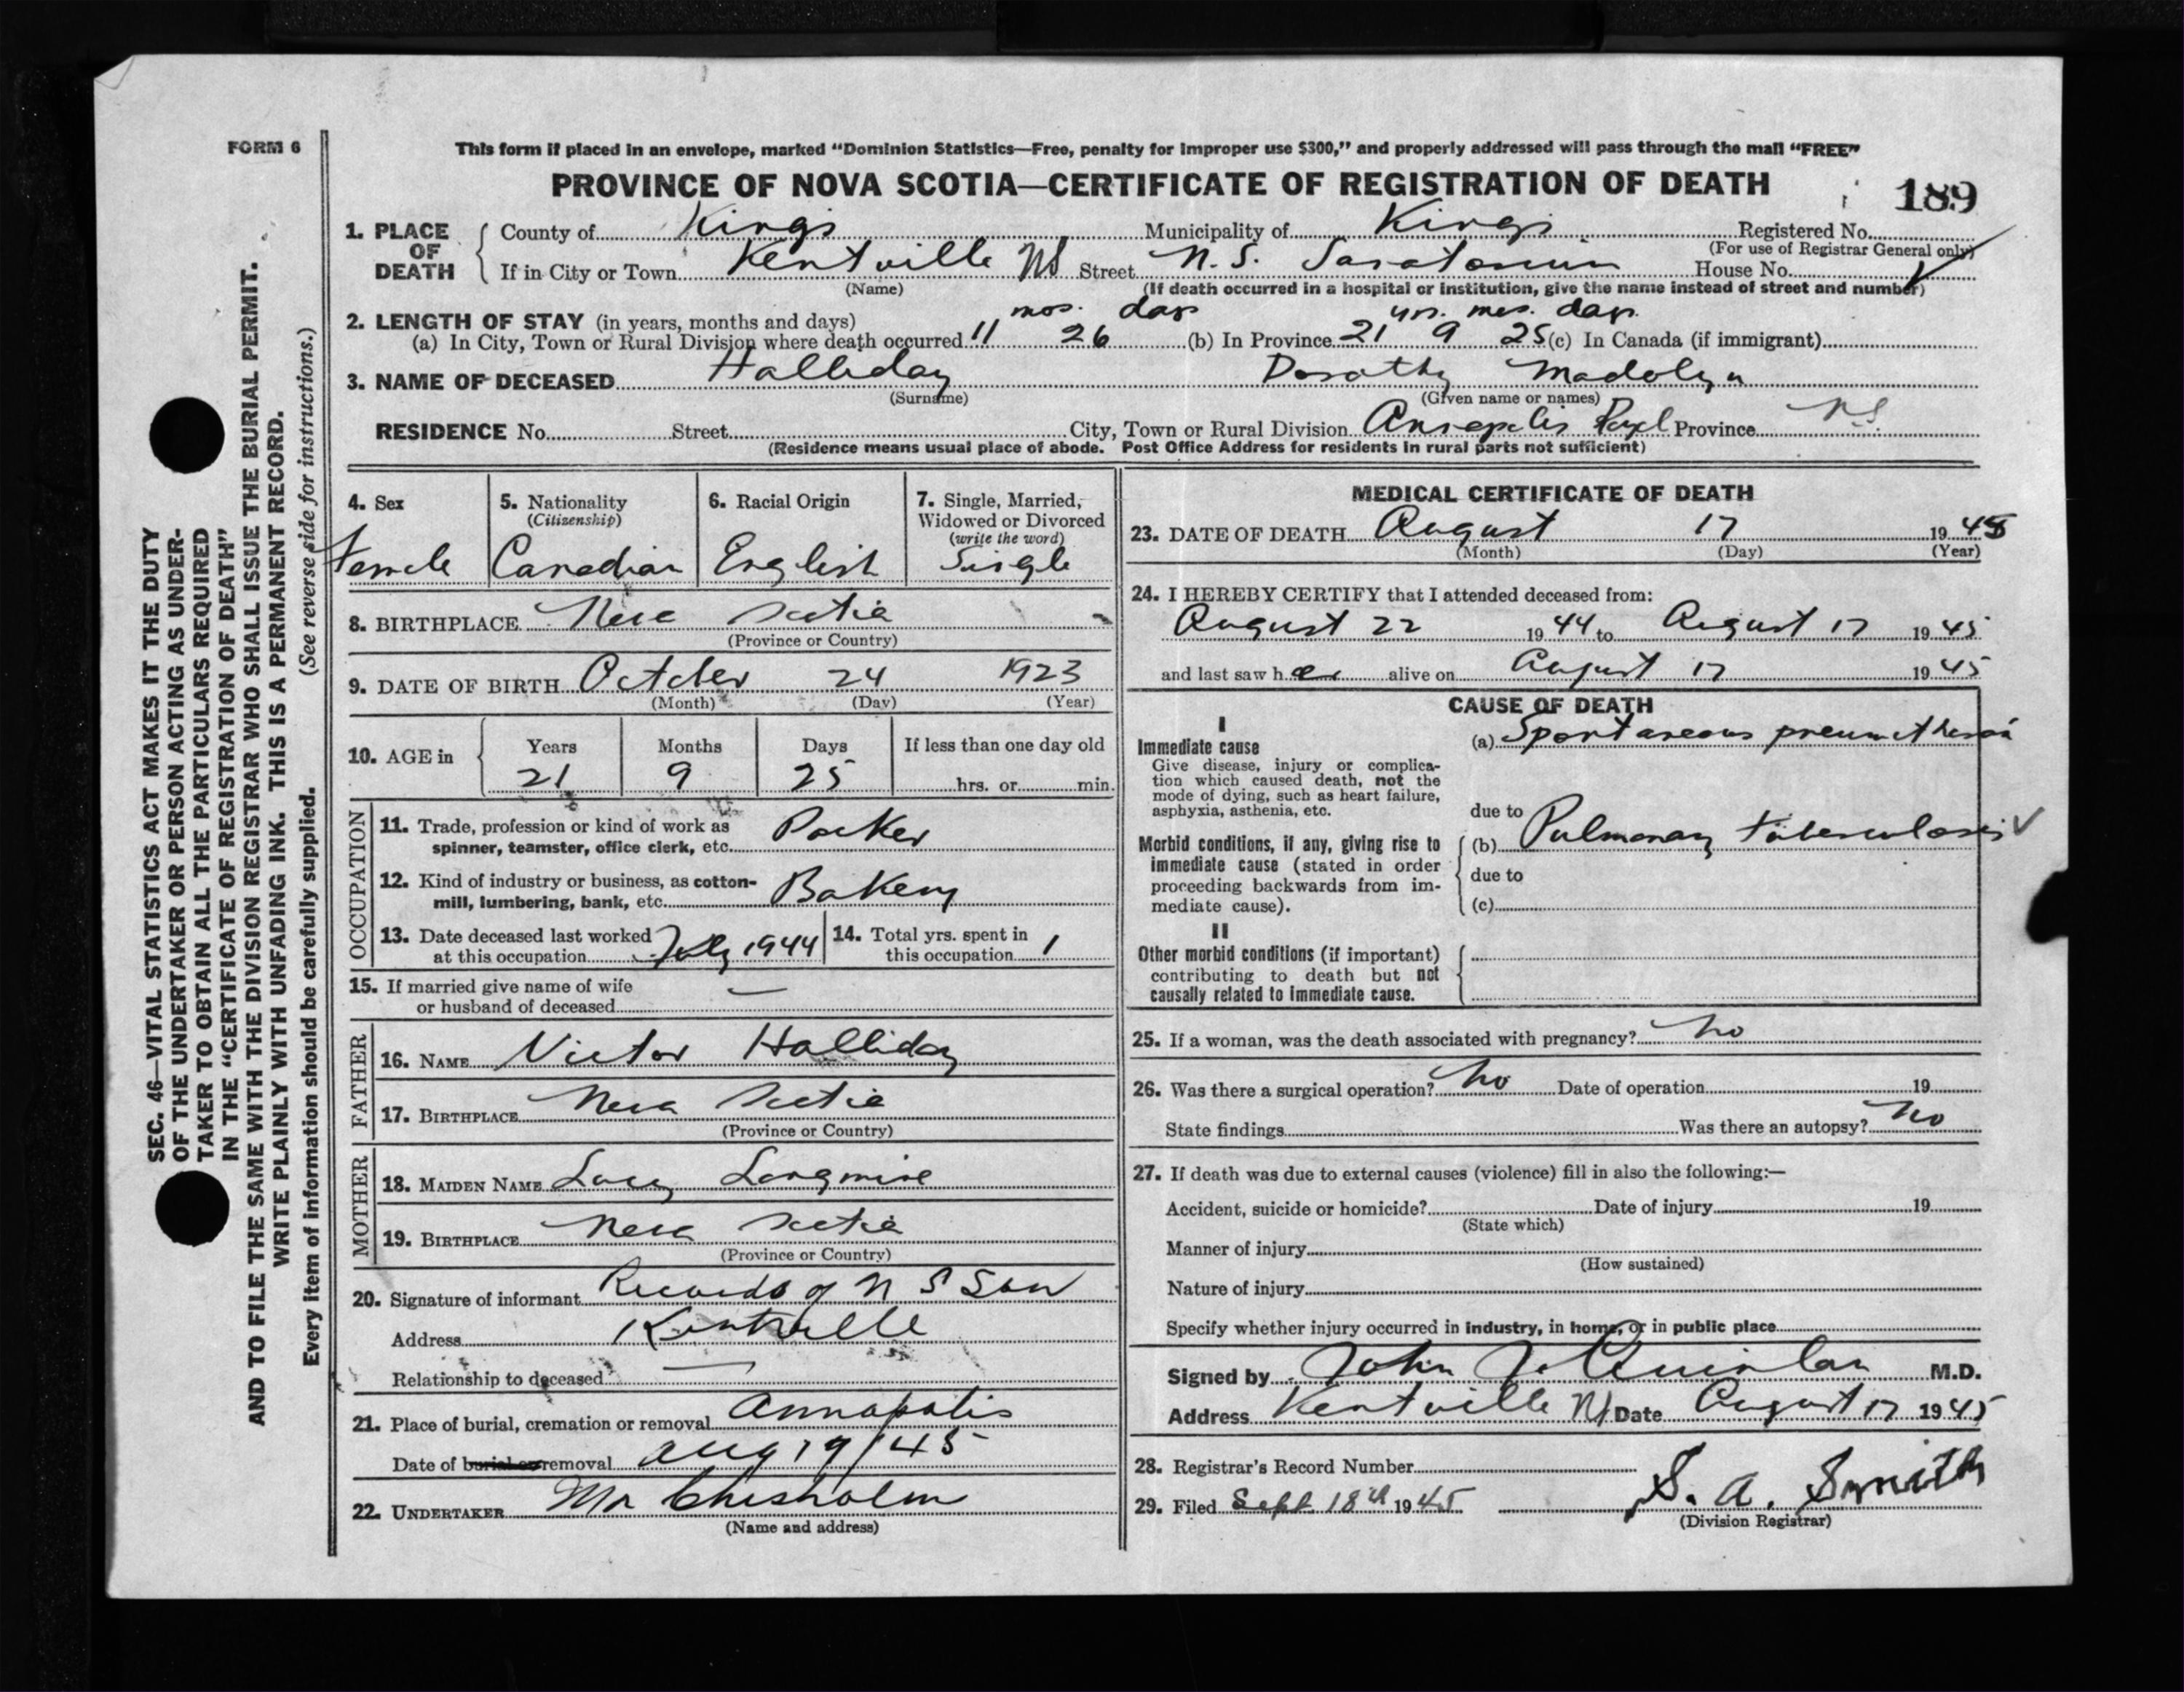 FORM 6
This form if placed in an envelope, marked "Dominion Statistics—Free, penalty for improper use $300," and properly addressed will pass through the mail "FREE"
PROVINCE OF NOVA SCOTIA—CERTIFICATE OF REGISTRATION OF DEATH 189
1. PLACE OF DEATH County of Kings Municipality of Kings Registered No.
(For use of Registrar General only)
If in City or Town Kentville NS Street N.S. Sanatorium House No.
(Name) (If death occurred in a hospital or institution, give the name instead of street and number)
2. LENGTH OF STAY (in years, months and days) mos. days yrs. mos. days.
(a) In City, Town or Rural Division where death occurred 11 26 (b) In Province 21 9 25 (c) In Canada (if immigrant)
3. NAME OF DECEASED Halliday Dorothy Madolyn
(Surname) (Given name or names)
RESIDENCE No. Street City, Town or Rural Division Annapolis Royal Province NS.
(Residence means usual place of abode. Post Office Address for residents in rural parts not sufficient)
4. Sex 5. Nationality (Citizenship) 6. Racial Origin 7. Single, Married, Widowed or Divorced (write the word)
Female Canadian English Single
8. BIRTHPLACE Nova Scotia
(Province or Country)
9. DATE OF BIRTH October 24 1923
(Month) (Day) (Year)
10. AGE in Years Months Days If less than one day old
21 9 25 hrs. or min.
OCCUPATION
11. Trade, profession or kind of work as Packer
spinner, teamster, office clerk, etc.
12. Kind of industry or business, as cotton- Bakery
mill, lumbering, bank, etc.
13. Date deceased last worked at this occupation July 1944 14. Total yrs. spent in this occupation 1
15. If married give name of wife
or husband of deceased —
FATHER
16. NAME Victor Halliday
17. BIRTHPLACE Nova Scotia
(Province or Country)
MOTHER
18. MAIDEN NAME Lucy Longmire
19. BIRTHPLACE Nova Scotia
(Province or Country)
20. Signature of informant Records of N S San
Address Kentville
Relationship to deceased —
21. Place of burial, cremation or removal Annapolis
Date of burial or removal Aug 19/45
22. UNDERTAKER Mr Chisholm
(Name and address)
MEDICAL CERTIFICATE OF DEATH
23. DATE OF DEATH August 17 1945
(Month) (Day) (Year)
24. I HEREBY CERTIFY that I attended deceased from:
August 22 1944 to August 17 1945
and last saw her alive on August 17 1945
CAUSE OF DEATH
I
Immediate cause (a) Spontaneous pneumothorax
Give disease, injury or complica-
tion which caused death, not the
mode of dying, such as heart failure,
asphyxia, asthenia, etc.
due to
Morbid conditions, if any, giving rise to (b) Pulmonary tuberculosis
immediate cause (stated in order
proceeding backwards from im- due to
mediate cause). (c)
II
Other morbid conditions (if important)
contributing to death but not
causally related to immediate cause.
25. If a woman, was the death associated with pregnancy? No
26. Was there a surgical operation? No Date of operation 19
State findings Was there an autopsy? No
27. If death was due to external causes (violence) fill in also the following:—
Accident, suicide or homicide? Date of injury 19
(State which)
Manner of injury
(How sustained)
Nature of injury
Specify whether injury occurred in industry, in home, or in public place
Signed by John J. Quinlan M.D.
Address Kentville NS Date August 17 1945
28. Registrar's Record Number
29. Filed Sept 18th 1945 S. A. Smith
(Division Registrar)
SEC. 46—VITAL STATISTICS ACT MAKES IT THE DUTY
OF THE UNDERTAKER OR PERSON ACTING AS UNDER-
TAKER TO OBTAIN ALL THE PARTICULARS REQUIRED
IN THE "CERTIFICATE OF REGISTRATION OF DEATH"
AND TO FILE THE SAME WITH THE DIVISION REGISTRAR WHO SHALL ISSUE THE BURIAL PERMIT.
WRITE PLAINLY WITH UNFADING INK. THIS IS A PERMANENT RECORD.
Every item of information should be carefully supplied. (See reverse side for instructions.)